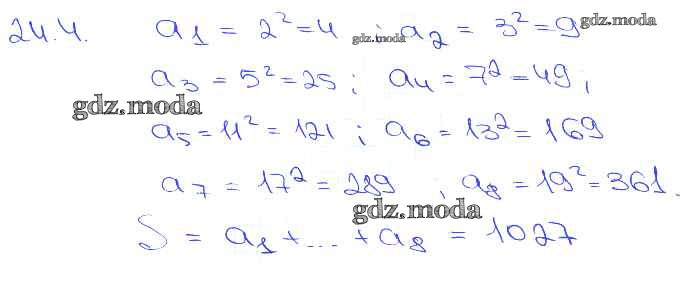 24.4. a₁ = 2² = 4 ; a₂ = 3² = 9 gdz.moda
gdz.moda
a₃ = 5² = 25 ; a₄ = 7² = 49 ;
gdz.moda
a₅ = 11² = 121 ; a₆ = 13² = 169
a₇ = 17² = 289 ; a₈ = 19² = 361.
gdz.moda
S = a₁ + ... + a₈ = 1027